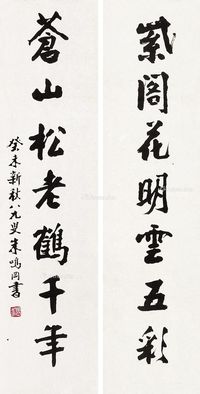 紫阁花明雲五彩
蒼山松老鶴千年
癸未新秋八九叟朱鳴岡書